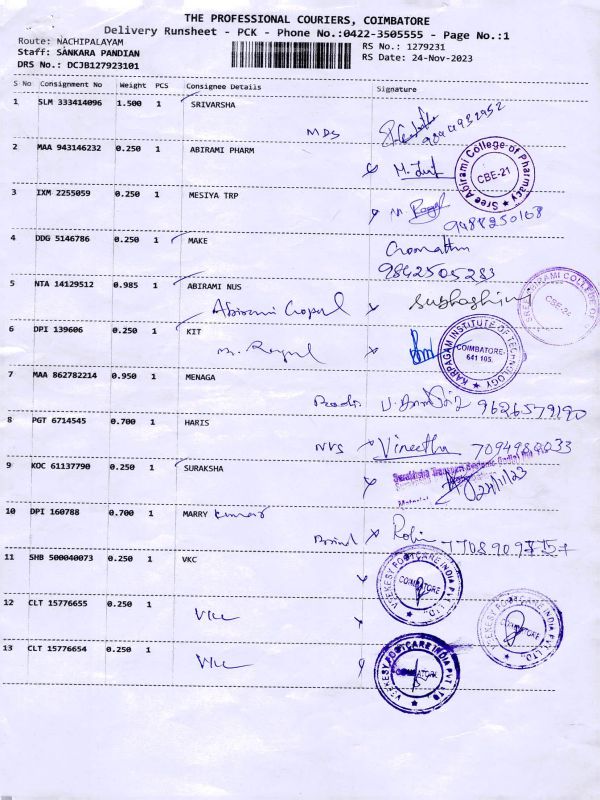 THE PROFESSIONAL COURIERS, COIMBATORE
Delivery Runsheet - PCK - Phone No.:0422-3505555 - Page No.:1
Route: NACHIPALAYAM
Staff: SANKARA PANDIAN
DRS No.: DCJB127923101
RS No.: 1279231
RS Date: 24-Nov-2023
S No Consignment No Weight PCS Consignee Details Signature
1 SLM 333414096 1.500 1 SRIVARSHA
MDS
2 MAA 943146232 0.250 1 ABIRAMI PHARM
Sree Abirami College of Pharmacy
CBE-21
3 IXM 2255059 0.250 1 MESIYA TRP
9488250168
4 DDG 5146786 0.250 1 MAKE
9842505283
5 NTA 14129512 0.985 1 ABIRAMI NUS
Abirami Gopal Subhashini
6 DPI 139606 0.250 1 KIT
KARPAGAM INSTITUTE OF TECHNOLOGY
COIMBATORE-
641 105.
7 MAA 862782214 0.950 1 MENAGA
9626579190
8 PGT 6714545 0.700 1 HARIS
NVS Vineetha
9 KOC 61137790 0.250 1 SURAKSHA
10 DPI 160788 0.700 1 MARRY Kumar
11 SHB 500040073 0.250 1 VKC
VEEKESY FOOTCARE INDIA PVT LTD.
COIMBATORE
12 CLT 15776655 0.250 1
VKC
VEEKESY FOOTCARE INDIA PVT LTD.
COIMBATORE
13 CLT 15776654 0.250 1
VKC
VEEKESY FOOTCARE INDIA PVT LTD.
COIMBATORE